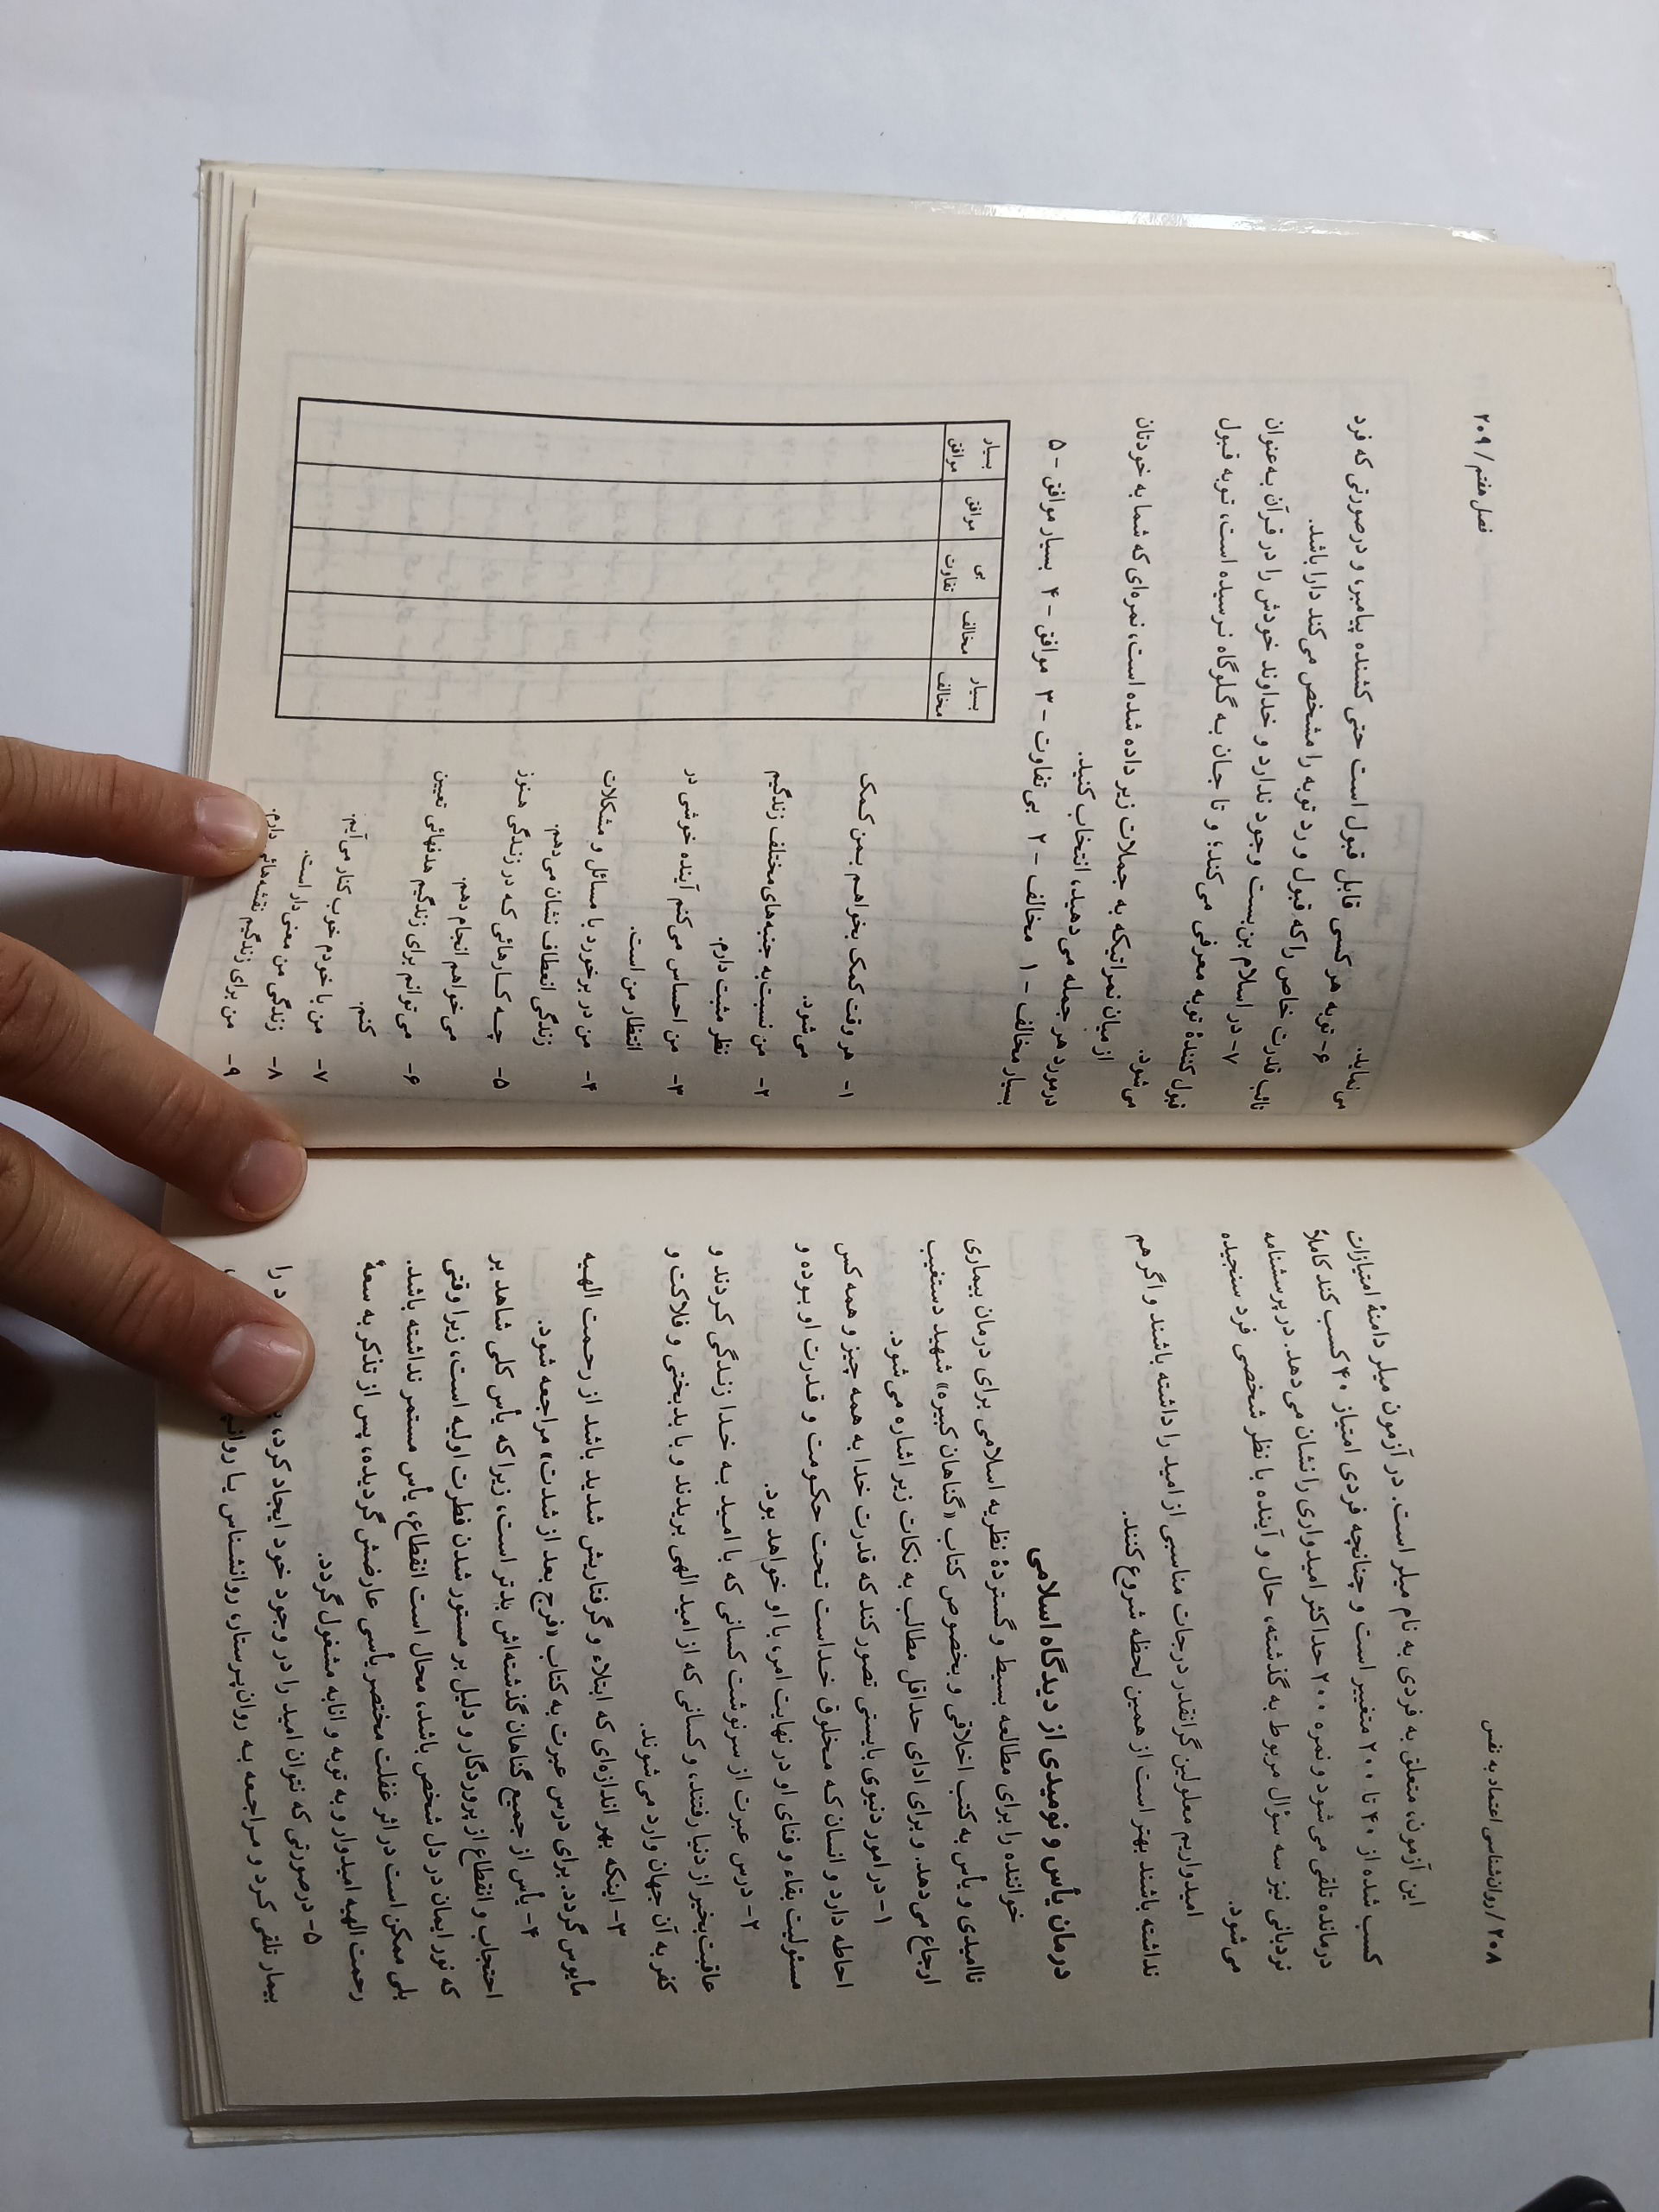 ۲۰۸/ روان‌شناسی اعتماد به نفس
این آزمون، متعلق به فردی به نام میلر است. در آزمون میلر دامنهٔ امتیازات
کسب شده از ۴۰ تا ۲۰۰ متغییر است و چنانچه فردی امتیاز ۴۰ کسب کند کاملاً
درمانده تلقی می‌شود و نمره ۲۰۰ حداکثر امیدواری را نشان می‌دهد. در پرسشنامه
نردبانی نیز سه سؤال مربوط به گذشته، حال و آینده با نظر شخصی فرد سنجیده
می‌شود.
امیدواریم معلولین گرانقدر درجات مناسبی از امید را داشته باشند و اگر هم
نداشته باشند بهتر است از همین لحظه شروع کنند.
درمان یأس و نومیدی از دیدگاه اسلامی
خواننده را برای مطالعه بسیط و گستردهٔ نظریه اسلامی برای درمان بیماری
ناامیدی و یأس به کتب اخلاقی و بخصوص کتاب «گناهان کبیره» شهید دستغیب
ارجاع می‌دهد. و برای ادای حداقل مطالب به نکات زیر اشاره می‌شود.
۱- در امور دنیوی بایستی تصور کند که قدرت خدا به همه چیز و همه کس
احاطه دارد و انسان که مخلوق خداست تحت حکومت و قدرت او بوده و
مسئولیت بقاء و فنای او در نهایت امر، با او خواهد بود.
۲- درس عبرت از سرنوشت کسانی که با امید به خدا زندگی کردند و
عاقبت‌بخیر از دنیا رفتند، و کسانی که از امید الهی بریدند و با بدبختی و فلاکت و
کفر به آن جهان وارد می‌شوند.
۳- اینکه بهر اندازه‌ای که ابتلاء و گرفتاریش شدید باشد از رحمت الهیه
مأیوس گردد. برای درس عبرت به کتاب «فرج بعد از شدت» مراجعه شود.
۴- یأس از جمیع گناهان گذشته‌اش بدتر است، زیرا که یأس کلی شاهد بر
احتجاب و انقطاع از پروردگار و دلیل بر مستور شدن فطرت اولیه است، زیرا وقتی
که نور ایمان در دل شخص باشد، محال است انقطاع، یأس مستمر نداشته باشد.
بلی ممکن است در اثر غفلت مختصر یأسی عارضش گردیده، پس از تذکر به سعهٔ
رحمت الهیه امیدوار و به توبه و انابه مشغول گردد.
۵- درصورتی که نتوان امید را در وجود خود ایجاد کرد، د را
بیمار تلقی کرد و مراجعه به روان‌پرستار، روانشناس یا
فصل هفتم / ۲۰۹
می‌نماید.
۶- توبه هر کسی قابل قبول است حتی کشنده پیامبر، و درصورتی که فرد
تائب قدرت خاص را که قبول و رد توبه را مشخص می‌کند دارا باشد.
۷- در اسلام بن‌بست وجود ندارد و خداوند خودش را در قرآن به‌عنوان
قبول کنندهٔ توبه معرفی می‌کند؛ و تا جان به گلوگاه نرسیده است، توبه قبول
می‌شود.
از میان نمراتیکه به جملات زیر داده شده است، نمره‌ای که شما به خودتان
درمورد هر جمله می‌دهید، انتخاب کنید.
بسیار مخالف - ۱ مخالف - ۲ بی‌تفاوت - ۳ موافق - ۴ بسیار موافق - ۵
بسیار مخالف
مخالف
بی تفاوت
موافق
بسیار موافق
۱- هر وقت کمک بخواهم بمن کمک
می‌شود.
۲- من نسبت‌به جنبه‌های مختلف زندگیم
نظر مثبت دارم.
۳- من احساس می‌کنم آینده خوشی در
انتظار من است.
۴- من در برخورد با مسائل و مشکلات
زندگی انعطاف نشان می‌دهم.
۵- چه کارهائی که در زندگی هنوز
می‌خواهم انجام دهم.
۶- می‌توانم برای زندگیم هدفهائی تعیین
کنم.
۷- من با خودم خوب کنار می‌آیم.
۸- زندگی من معنی‌دار است.
۹- من برای زندگیم نقشه‌هائی دارم.